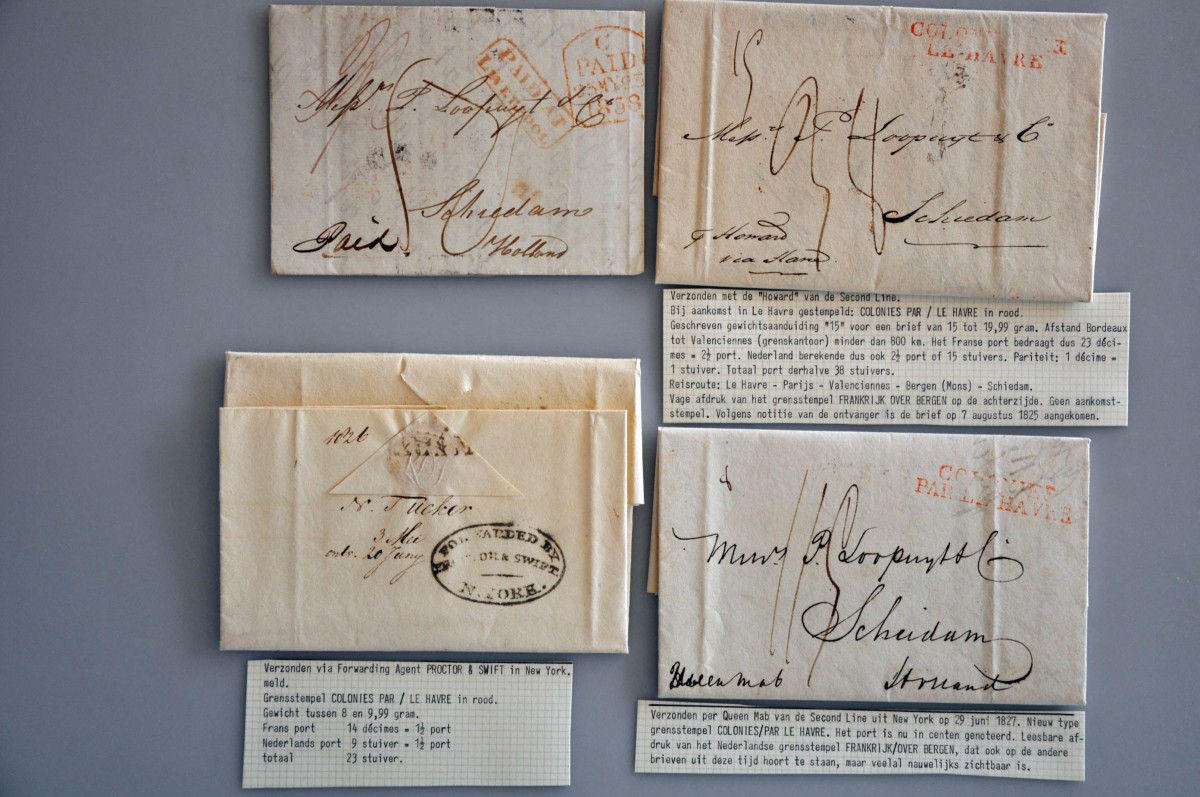 PAID AT
LIVERPOOL
C
PAID
1838
Messrs. P. Loopuyt & Co
Schiedam
Holland
Paid
COLONIES PAR
LE HAVRE
15
Messrs. P. Loopuyt & Co
Schiedam
p Howard
via Havre
Verzonden met de "Howard" van de Second Line.
Bij aankomst in Le Havre gestempeld: COLONIES PAR / LE HAVRE in rood.
Geschreven gewichtsaanduiding "15" voor een brief van 15 tot 19,99 gram. Afstand Bordeaux
tot Valenciennes (grenskantoor) minder dan 800 km. Het Franse port bedraagt dus 23 déci-
mes = 2½ port. Nederland berekende dus ook 2½ port of 15 stuivers. Pariteit: 1 décime =
1 stuiver. Totaal port derhalve 38 stuivers.
Reisroute: Le Havre - Parijs - Valenciennes - Bergen (Mons) - Schiedam.
Vage afdruk van het grensstempel FRANKRIJK OVER BERGEN op de achterzijde. Geen aankomst-
stempel. Volgens notitie van de ontvanger is de brief op 7 augustus 1825 aangekomen.
1826
N. Tucker
3 Mei
ontv. 20 Juny
FORWARDED BY
PROCTOR & SWIFT.
N. YORK.
Verzonden via Forwarding Agent PROCTOR & SWIFT in New York.
meld.
Grensstempel COLONIES PAR / LE HAVRE in rood.
Gewicht tussen 8 en 9,99 gram.
Frans port 14 décimes = 1½ port
Nederlands port 9 stuiver = 1½ port
totaal 23 stuiver.
COLONIES
PAR LE HAVRE
8
Messrs P. Loopuyt & Co
Scheidam
Holland
Queen Mab
Verzonden per Queen Mab van de Second Line uit New York op 29 juni 1827. Nieuw type
grensstempel COLONIES/PAR LE HAVRE. Het port is nu in centen genoteerd. Leesbare af-
druk van het Nederlandse grensstempel FRANKRIJK/OVER BERGEN, dat ook op de andere
brieven uit deze tijd hoort te staan, maar veelal nauwelijks zichtbaar is.